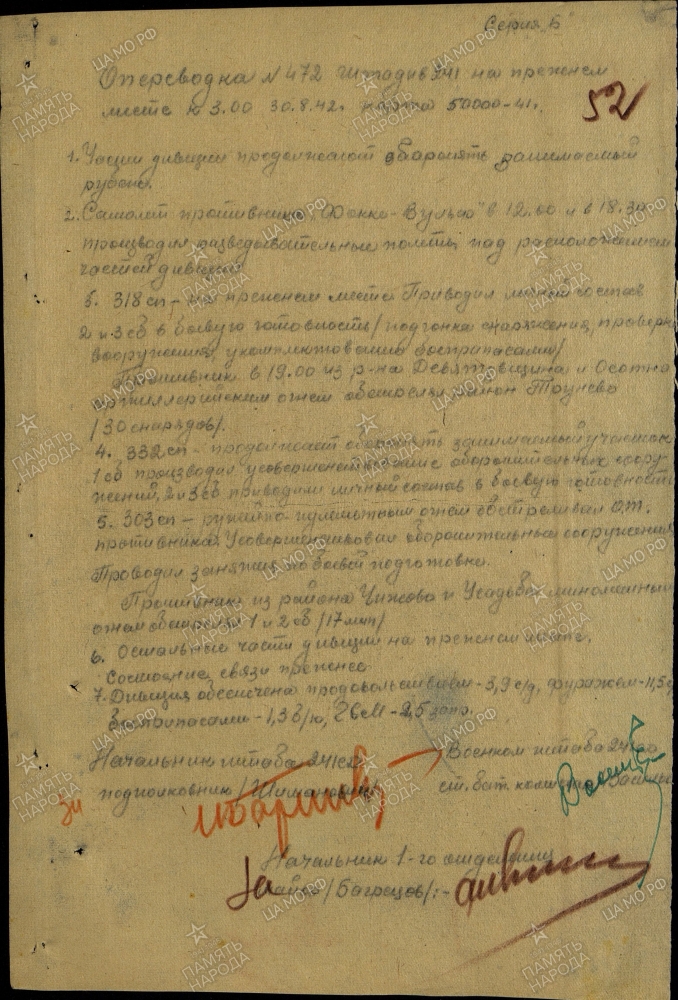 Серия Б
Оперсводка N 472 Штадив 241 на прежнем
месте к 3.00 30.8.42г. карта 50000-41г.
52
1. Части дивизии продолжают оборонять занимаемый
рубеж.
2. Самолет противника "Фокке-Вульф" в 12.00 и в 18.30
производил разведывательные полеты над расположением
частей дивизии
3. 318 сп - на прежнем месте Приводил личный состав
2 и 3 сб в боевую готовность /подгонка снаряжения, проверка
вооружения, укомплектование боеприпасами/
Противник в 19.00 из р-на и
артиллерийским огнем обстрелял район
/30 снарядов/.
4. 332 сп - продолжает оборонять занимаемый участок
1 сб производил усовершенствование оборонительных соору-
жений, 2 и 3 сб приводили личный состав в боевую готовность
5. 303 сп - ружейно-пулеметным огнем обстреливал О.Т.
противника. Усовершенствовал оборонительные сооружения
Проводил занятия по боевой подготовке.
Противник из района Чижово и Усадьба минометным
огнем обстрелял 1 и 2 сб /17 мин/
6. Остальные части дивизии на прежнем месте.
Состояние связи прежнее
7. Дивизия обеспечена продовольствием - 3,9 с/д, фуражем - 11,5 с/д
боеприпасами - 1,3 б/к, ГСМ - 2,5 запр.
Начальник штаба 241 сд Военком штаба 241 сд
подполковник ст. бат. комиссар
Начальник 1-го отделения
За майор /Багрецов/:-
ПАМЯТЬ НАРОДА
ЦА МО РФ